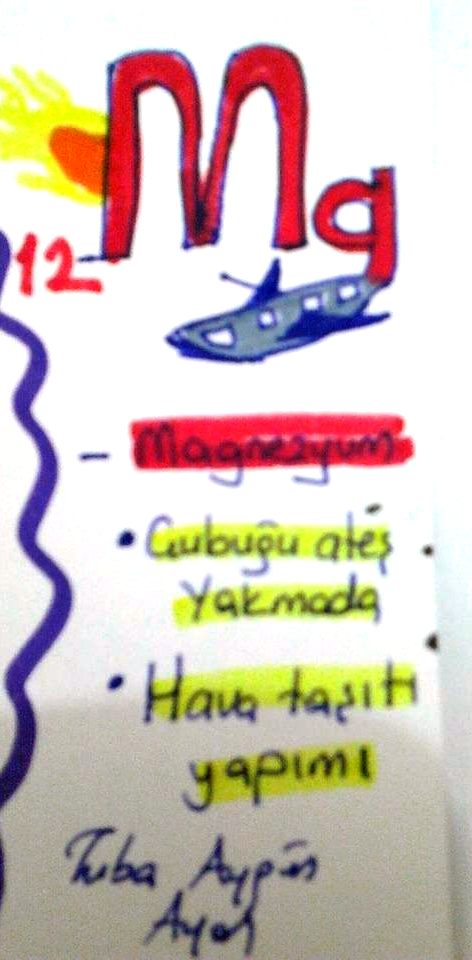 Mg
12
- Magnezyum
• Çubuğu ateş
Yakmada
• Hava taşıtı
yapımı
Tuba